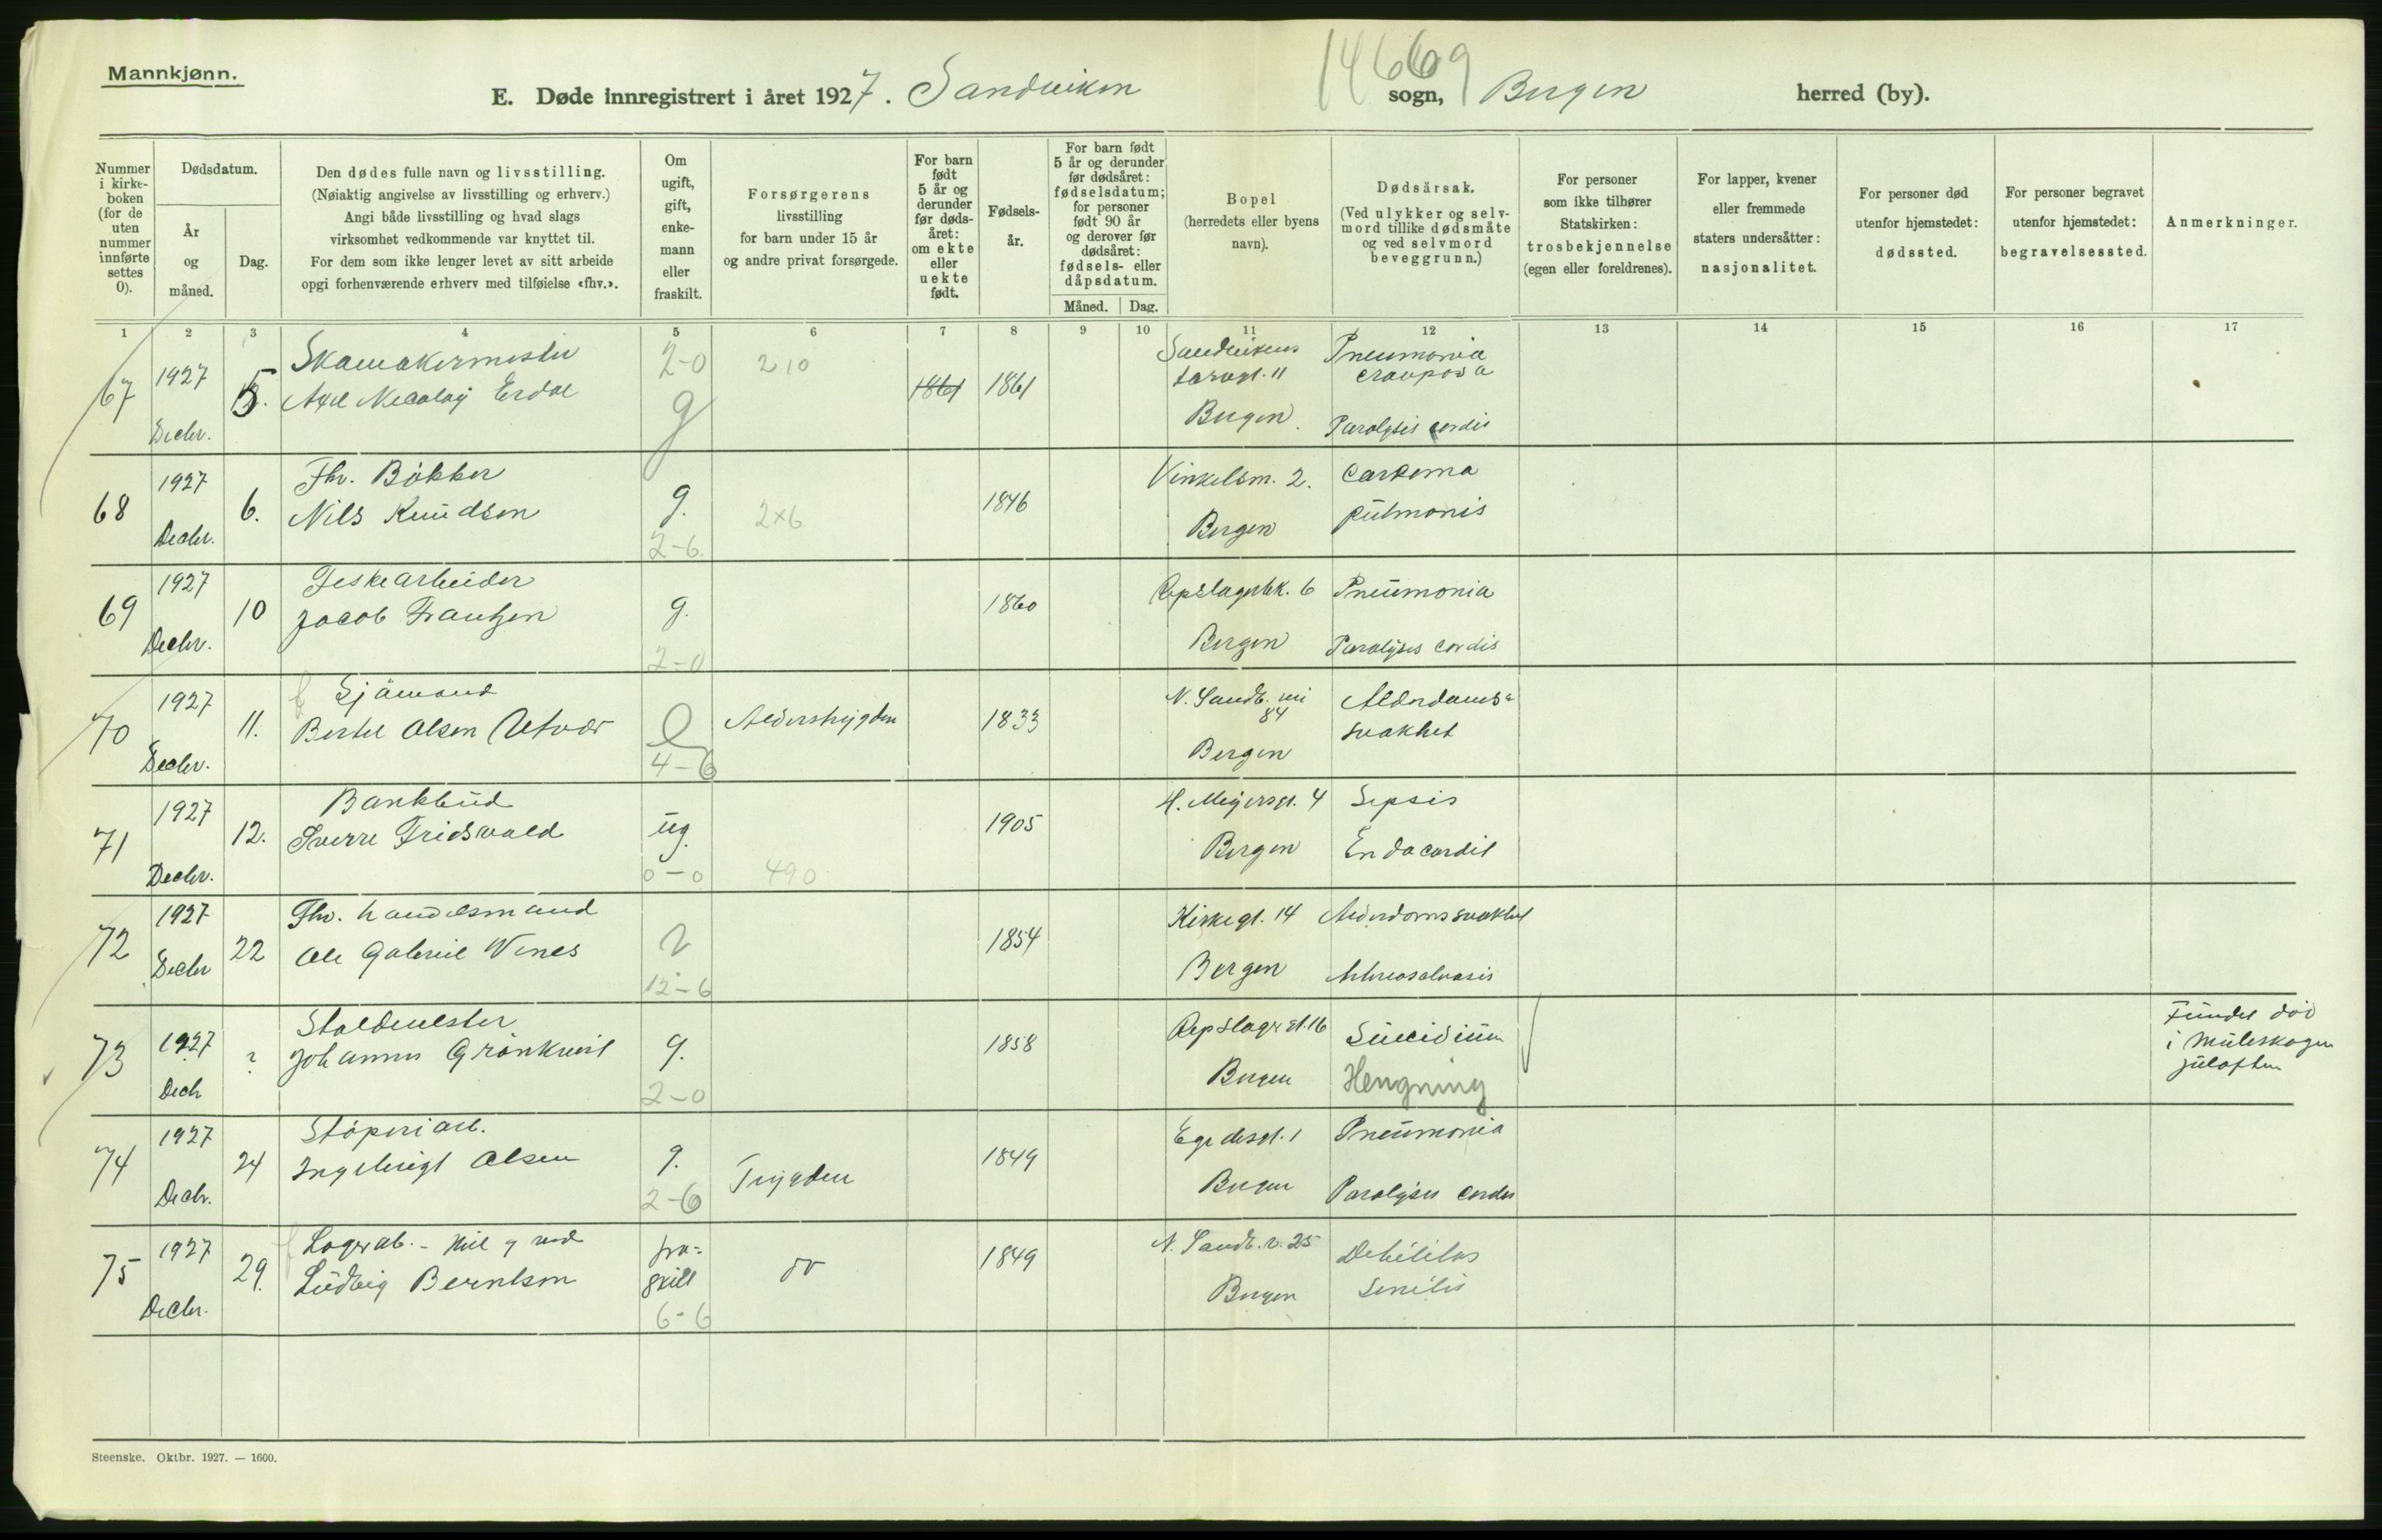 14669
Mannkjønn.
E. Døde innregistrert i året 1927. Sandviken sogn, Bergen herred (by).
Nummer i kirke-boken (for de uten nummer innførte settes 0).
Dødsdatum.
År og måned.
Dag.
Den dødes fulle navn og livsstilling.
(Nøiaktig angivelse av livsstilling og erhverv.)
Angi både livsstilling og hvad slags
virksomhet vedkommende var knyttet til.
For dem som ikke lenger levet av sitt arbeide
opgi forhenværende erhverv med tilføielse «fhv.».
Om ugift, gift, enke-mann eller fraskilt.
Forsørgerens
livsstilling
for barn under 15 år
og andre privat forsørgede.
For barn født 5 år og derunder før døds-året: om ekte eller uekte født.
Fødsels-år.
For barn født 5 år og derunder før dødsåret: fødselsdatum; for personer født 90 år og derover før dødsåret: fødsels- eller dåpsdatum.
Måned. Dag.
Bopel
(herredets eller byens
navn).
Dødsårsak.
(Ved ulykker og selv-
mord tillike dødsmåte
og ved selvmord
beveggrunn.)
For personer
som ikke tilhører
Statskirken:
trosbekjennelse
(egen eller foreldrenes).
For lapper, kvener
eller fremmede
staters undersåtter:
nasjonalitet.
For personer død
utenfor hjemstedet:
dødssted.
For personer begravet
utenfor hjemstedet:
begravelsessted.
Anmerkninger.
1 2 3 4 5 6 7 8 9 10 11 12 13 14 15 16 17
67 1927 Decbr. 5. Skomakermester
Axel Nicolay Erdal
2-0
g
210
1861 1861
Sandvikens
torvgt. 11
Bergen.
Pneumonia
crouposa
Paralysis cordis
68 1927 Decbr. 6. Fhv. Bökker
Nils Knudsen
g.
2-6.
2x6
1846
Vinkelsm. 2.
Bergen
Carcoma
pulmonis
69 1927 Decbr. 10 Feskearbeider
Jacob Frantzen
g.
2-0
1860
Repslagerbk. 6
Bergen
Pneumonia
Paralyses cordis
70 1927 Decbr. 11. f Sjömand
Bertel Olsen Utvær
e
4-6
Alderstrygden
1833
N. Sandv. vei
84
Bergen
Alderdoms-
svakhet
71 1927 Decbr. 12. Bankbud
Sverre Fridsvald
ug.
0-0
490
1905
H. Meyersgt. 4
Bergen
Sepsis
Endocardit
72 1927 Decbr 22 Fhv. handelsmand
Ole Gabriel Vines
12-6
1854
Kirkegt. 14
Bergen
Alderdomssvakhet
73 1927 Decb ? Staldmester
Johannes Grönkvist
g.
2-0
1858
Repslagergt. 16
Bergen
Suicidium
Hengning
Fundet död
i Muleskogen
juleaften
74 1927 Decbr. 24 Stöperiarb.
Ingebrigt Olsen
g.
2-6
Trygden
1849
Egedesgt. 1
Bergen
Pneumonia
Paralyses cordis
75 1927 Decbr. 29. f Lagerarb. -
Ludvig Berntsen
fra-
skilt
6-6
do
1849
N. Sandv. v. 25
Bergen
Debilitas
senilis
Steenske. Oktbr. 1927. — 1600.